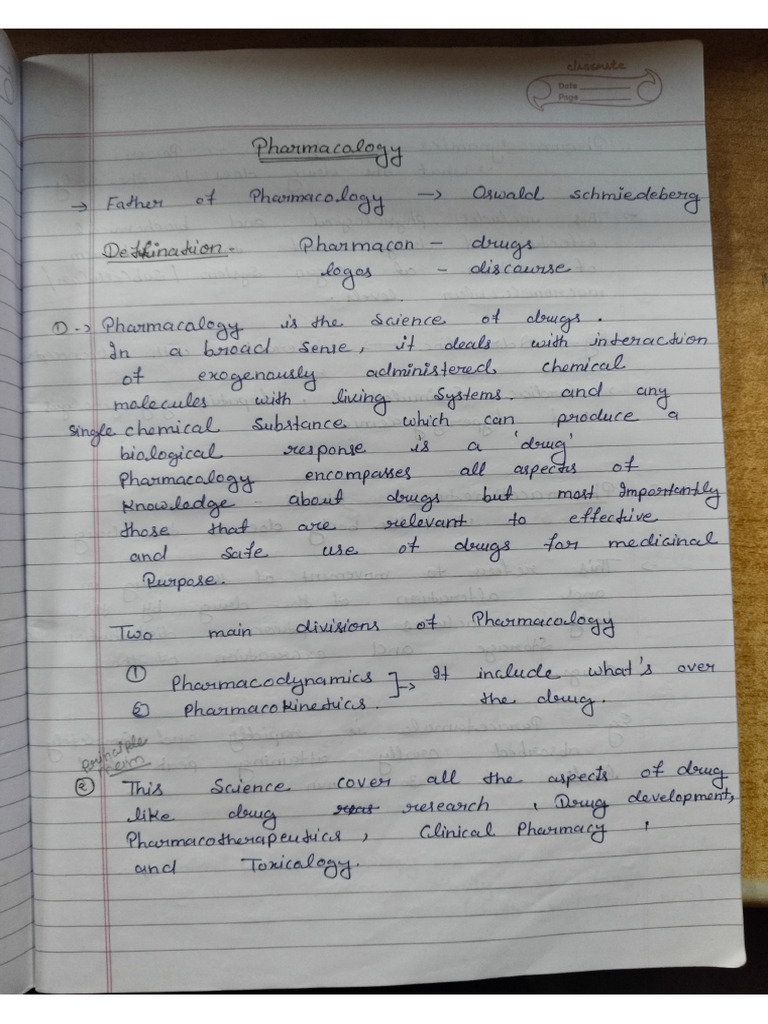 classmate
Date
Page
Pharmacalogy
→ Father of Pharmacology → Oswald Schmiedeberg
Deffination - Pharmacon - drugs
logos - discourse
① → Pharmacalogy is the Science of drugs.
In a broad sense, it deals with interaction
of exogenously administered chemical
molecules with living Systems. and any
single chemical Substance which can produce a
biological response is a 'drug'
Pharmacalogy encompasses all aspects of
Knowledge about drugs but most Importently
those that are relevant to effective
and safe use of drugs for medicinal
Purpose.
Two main divisions of Pharmacology
① Pharmacodynamics ] → It include what's over
② Pharmacokinetics. the drug.
principle
② This Science cover all the aspects of drug
like drug research, Drug development,
Pharmacotherapeutics, Clinical Pharmacy,
and Toxicalogy.